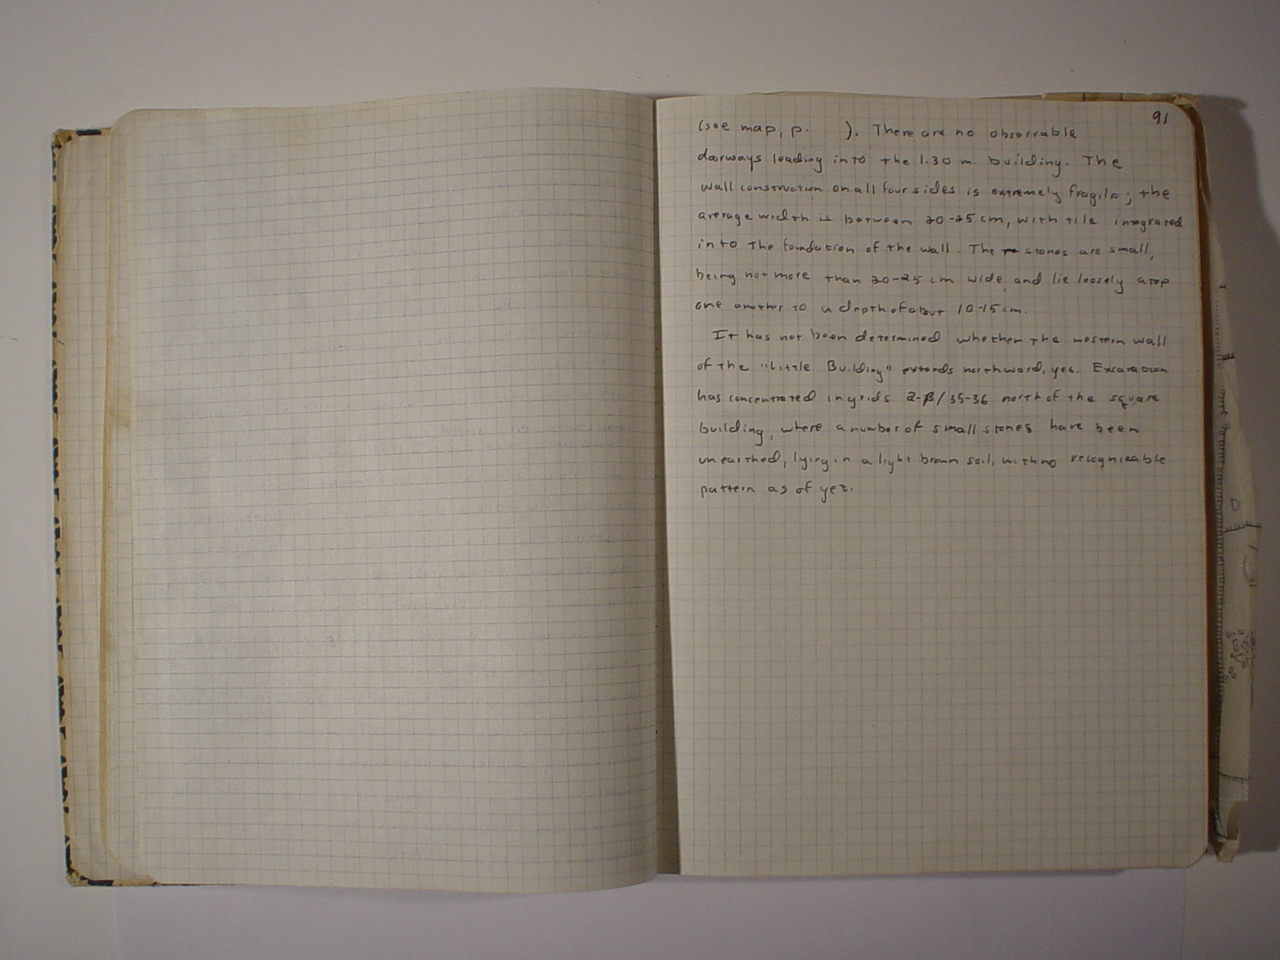 91
(see map, p.     ). There are no observable
doorways leading into the 1.30 m. building. The
wall construction on all four sides is extremely fragile; the
average width is between 20-25 cm, with tile integrated
into the foundation of the wall. The stones are small,
being not more than 20-25 cm wide, and lie loosely atop
one another to a depth of about 10-15 cm.
It has not been determined whether the western wall
of the "Little Building" extends northward, yet. Excavation
has concentrated in grids 2-β/35-36 north of the square
building, where a number of small stones have been
unearthed, lying in a light brown soil, with no recognizable
pattern as of yet.